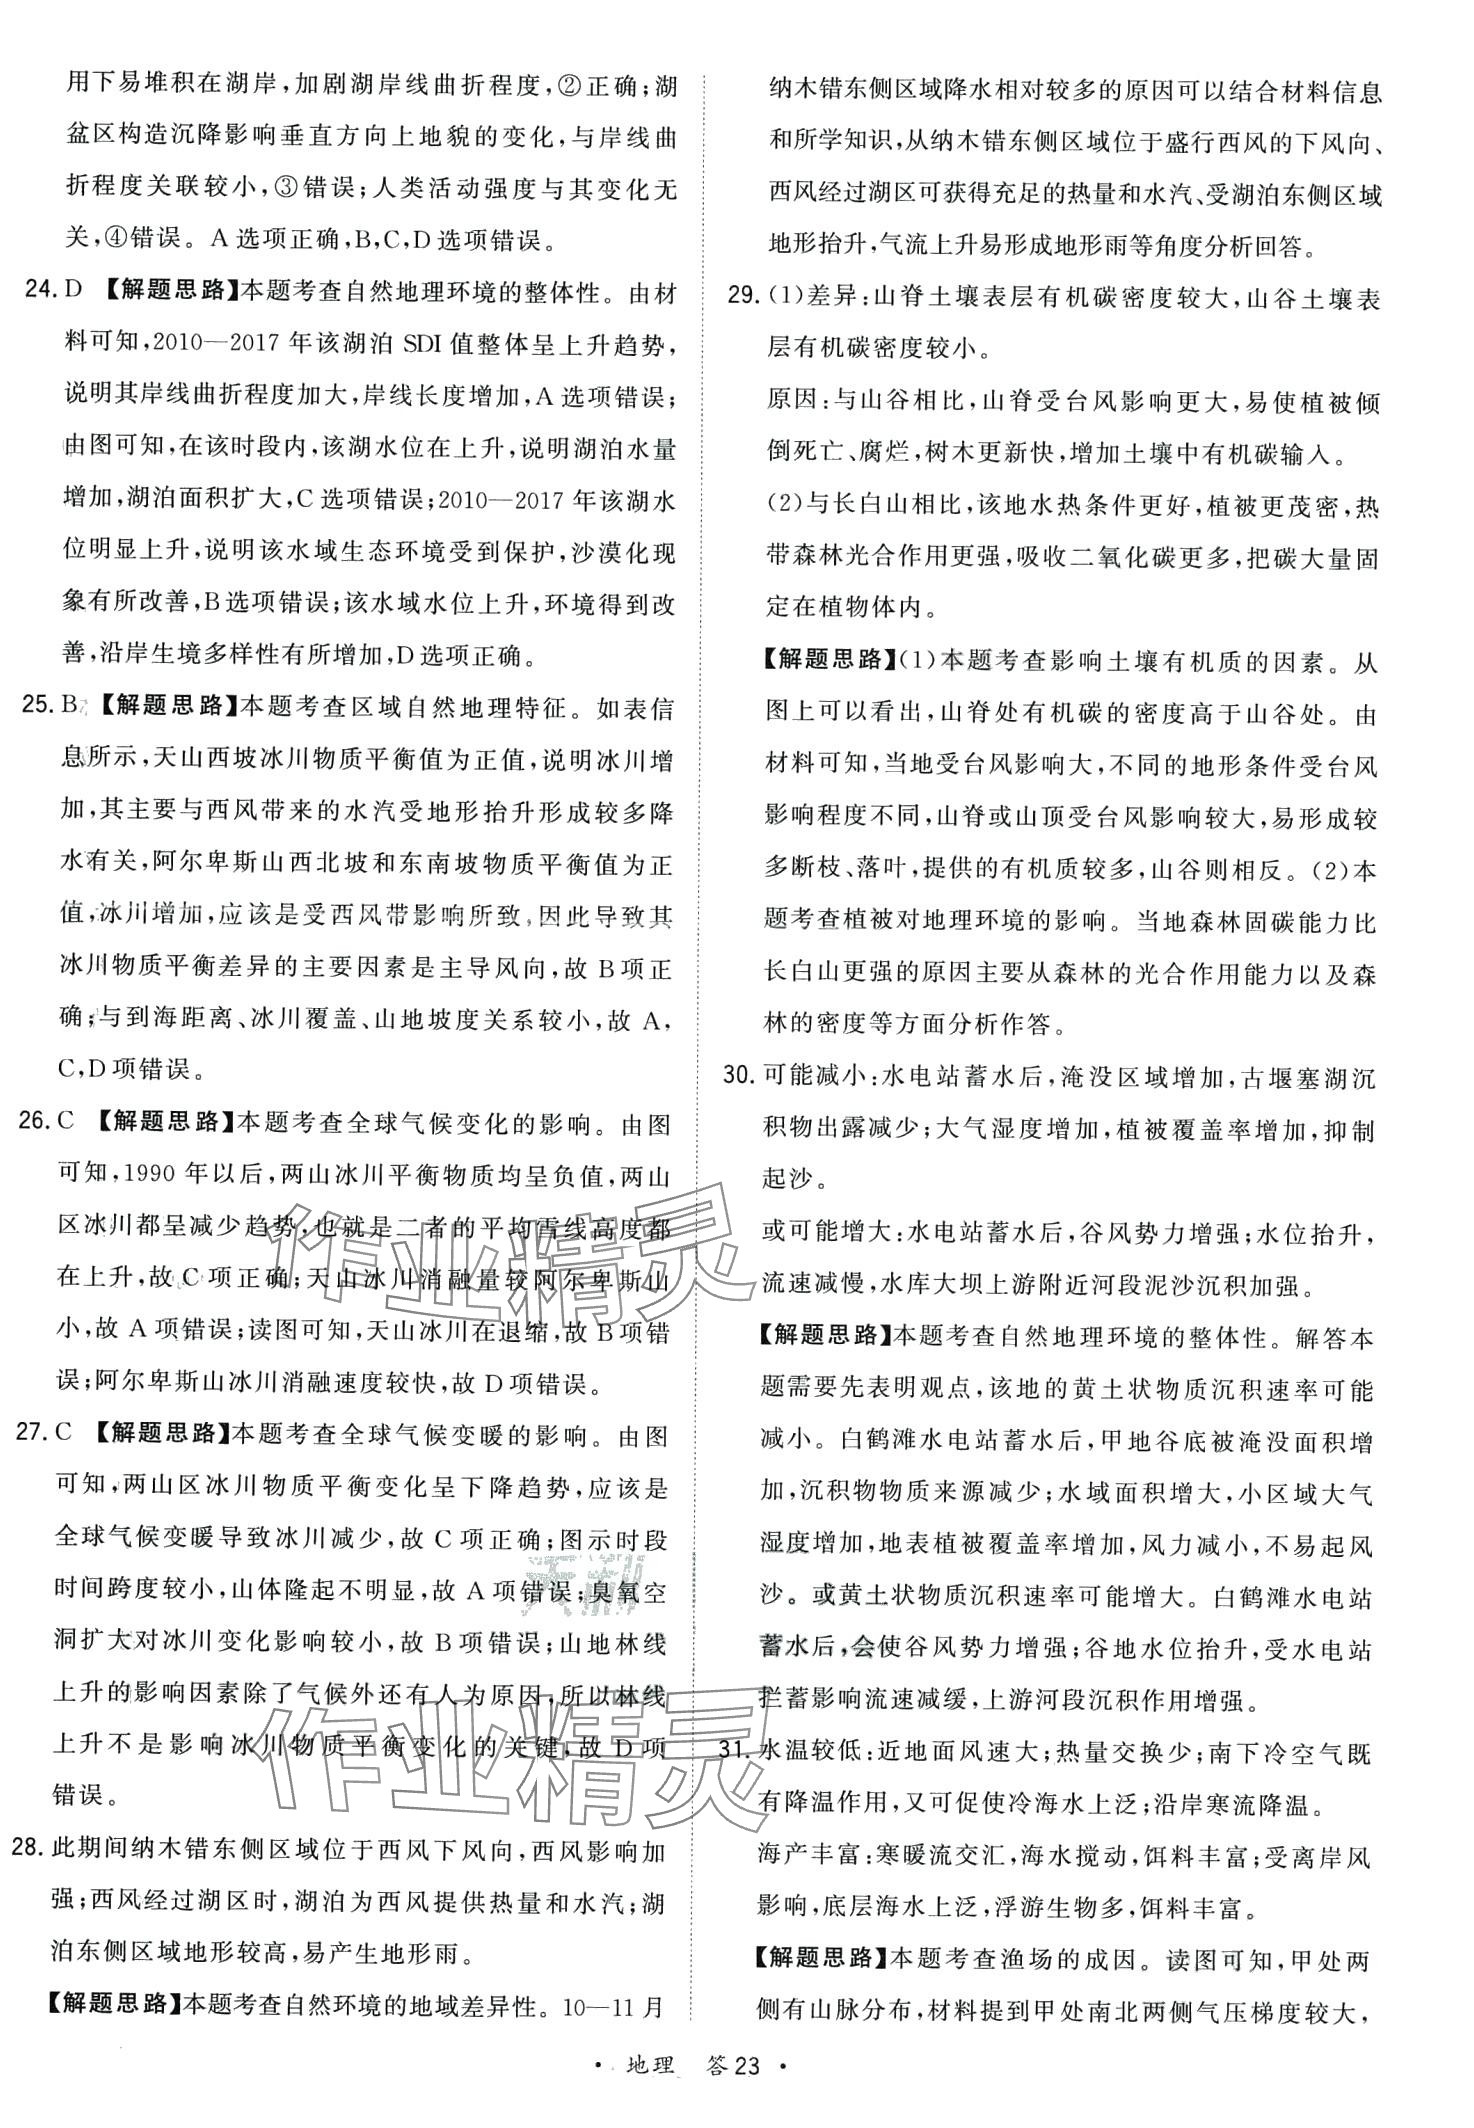 用下易堆积在湖岸，加剧湖岸线曲折程度，②正确；湖
盆区构造沉降影响垂直方向上地貌的变化，与岸线曲
折程度关联较小，③错误；人类活动强度与其变化无
关，④错误。A选项正确，B，C，D选项错误。
24. D 【解题思路】本题考查自然地理环境的整体性。由材
料可知，2010—2017 年该湖泊 SDI 值整体呈上升趋势，
说明其岸线曲折程度加大，岸线长度增加，A 选项错误；
由图可知，在该时段内，该湖水位在上升，说明湖泊水量
增加，湖泊面积扩大，C 选项错误；2010—2017 年该湖水
位明显上升，说明该水域生态环境受到保护，沙漠化现
象有所改善，B选项错误；该水域水位上升，环境得到改
善，沿岸生境多样性有所增加，D选项正确。
25. B 【解题思路】本题考查区域自然地理特征。如表信
息所示，天山西坡冰川物质平衡值为正值，说明冰川增
加，其主要与西风带来的水汽受地形抬升形成较多降
水有关，阿尔卑斯山西北坡和东南坡物质平衡值为正
值，冰川增加，应该是受西风带影响所致，因此导致其
冰川物质平衡差异的主要因素是主导风向，故 B项正
确；与到海距离、冰川覆盖、山地坡度关系较小，故 A，
C，D项错误。
26. C 【解题思路】本题考查全球气候变化的影响。由图
可知，1990 年以后，两山冰川平衡物质均呈负值，两山
区冰川都呈减少趋势，也就是二者的平均雪线高度都
在上升，故 C 项正确；天山冰川消融量较阿尔卑斯山
小，故 A 项错误；读图可知，天山冰川在退缩，故 B项错
误；阿尔卑斯山冰川消融速度较快，故 D项错误。
27. C 【解题思路】本题考查全球气候变暖的影响。由图
可知，两山区冰川物质平衡变化呈下降趋势，应该是
全球气候变暖导致冰川减少，故 C 项正确；图示时段
时间跨度较小，山体隆起不明显，故 A 项错误；臭氧空
洞扩大对冰川变化影响较小，故 B 项错误；山地林线
上升的影响因素除了气候外还有人为原因，所以林线
上升不是影响冰川物质平衡变化的关键，故 D 项
错误。
28. 此期间纳木错东侧区域位于西风下风向，西风影响加
强；西风经过湖区时，湖泊为西风提供热量和水汽；湖
泊东侧区域地形较高，易产生地形雨。
【解题思路】本题考查自然环境的地域差异性。10—11 月
纳木错东侧区域降水相对较多的原因可以结合材料信息
和所学知识，从纳木错东侧区域位于盛行西风的下风向、
西风经过湖区可获得充足的热量和水汽、受湖泊东侧区域
地形抬升，气流上升易形成地形雨等角度分析回答。
29. (1)差异：山脊土壤表层有机碳密度较大，山谷土壤表
层有机碳密度较小。
原因：与山谷相比，山脊受台风影响更大，易使植被倾
倒死亡、腐烂，树木更新快，增加土壤中有机碳输入。
(2)与长白山相比，该地水热条件更好，植被更茂密，热
带森林光合作用更强，吸收二氧化碳更多，把碳大量固
定在植物体内。
【解题思路】(1)本题考查影响土壤有机质的因素。从
图上可以看出，山脊处有机碳的密度高于山谷处。由
材料可知，当地受台风影响大，不同的地形条件受台风
影响程度不同，山脊或山顶受台风影响较大，易形成较
多断枝、落叶，提供的有机质较多，山谷则相反。(2)本
题考查植被对地理环境的影响。当地森林固碳能力比
长白山更强的原因主要从森林的光合作用能力以及森
林的密度等方面分析作答。
30. 可能减小：水电站蓄水后，淹没区域增加，古堰塞湖沉
积物出露减少；大气湿度增加，植被覆盖率增加，抑制
起沙。
或可能增大：水电站蓄水后，谷风势力增强；水位抬升，
流速减慢，水库大坝上游附近河段泥沙沉积加强。
【解题思路】本题考查自然地理环境的整体性。解答本
题需要先表明观点，该地的黄土状物质沉积速率可能
减小。白鹤滩水电站蓄水后，甲地谷底被淹没面积增
加，沉积物物质来源减少；水域面积增大，小区域大气
湿度增加，地表植被覆盖率增加，风力减小，不易起风
沙。或黄土状物质沉积速率可能增大。白鹤滩水电站
蓄水后，会使谷风势力增强；谷地水位抬升，受水电站
拦蓄影响流速减缓，上游河段沉积作用增强。
31. 水温较低：近地面风速大；热量交换少；南下冷空气既
有降温作用，又可促使冷海水上泛；沿岸寒流降温。
海产丰富：寒暖流交汇，海水搅动，饵料丰富；受离岸风
影响，底层海水上泛，浮游生物多，饵料丰富。
【解题思路】本题考查渔场的成因。读图可知，甲处两
侧有山脉分布，材料提到甲处南北两侧气压梯度较大，
作业精灵
作业精灵
天利
• 地理 答23 •